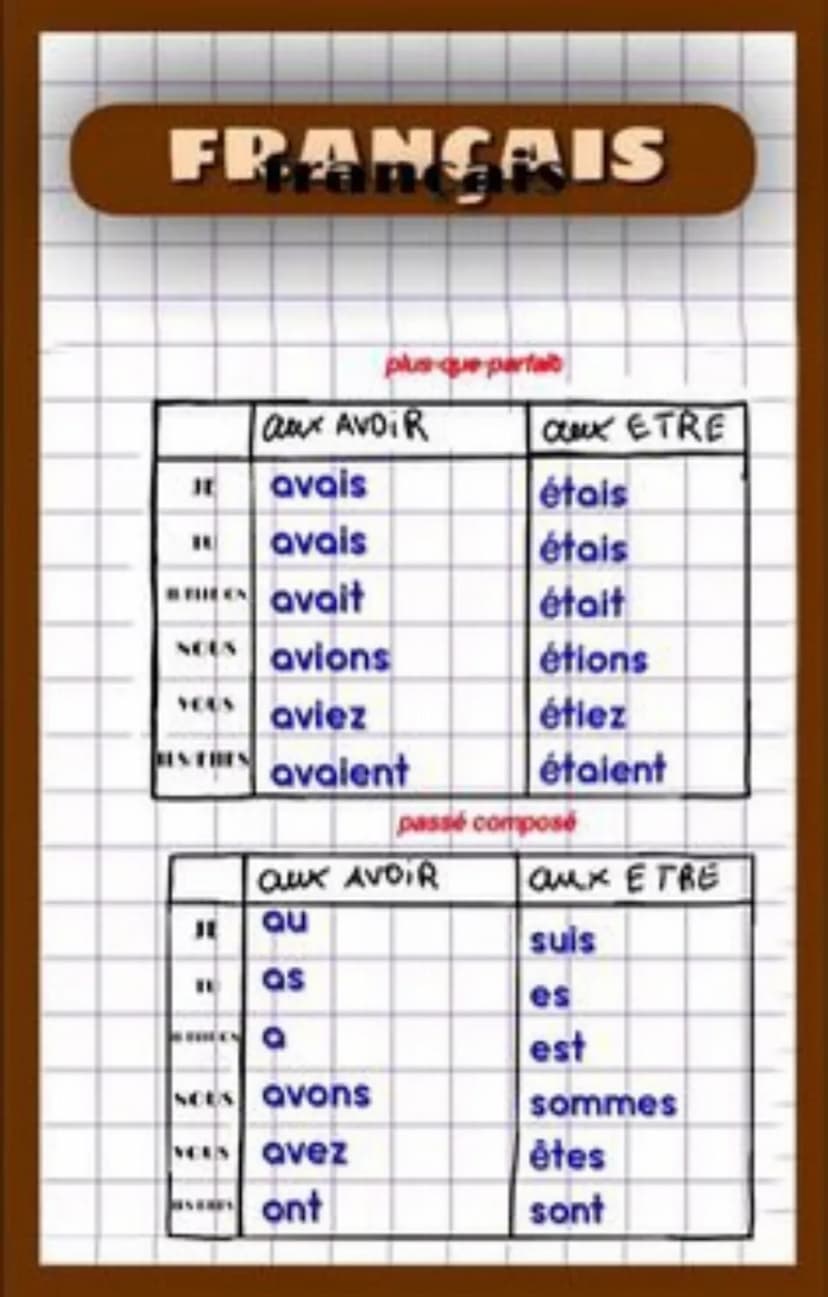 FRANÇAIS
français
plus-que-parfait
aux AVOIR aux ETRE
JE avais étais
TU avais étais
avait était
NOUS avions étions
VOUS aviez étiez
ILS/ELLES avaient étaient
passé composé
aux AVOIR aux ETRE
JE au suis
TU as es
a est
NOUS avons sommes
VOUS avez êtes
ILS/ELLES ont sont